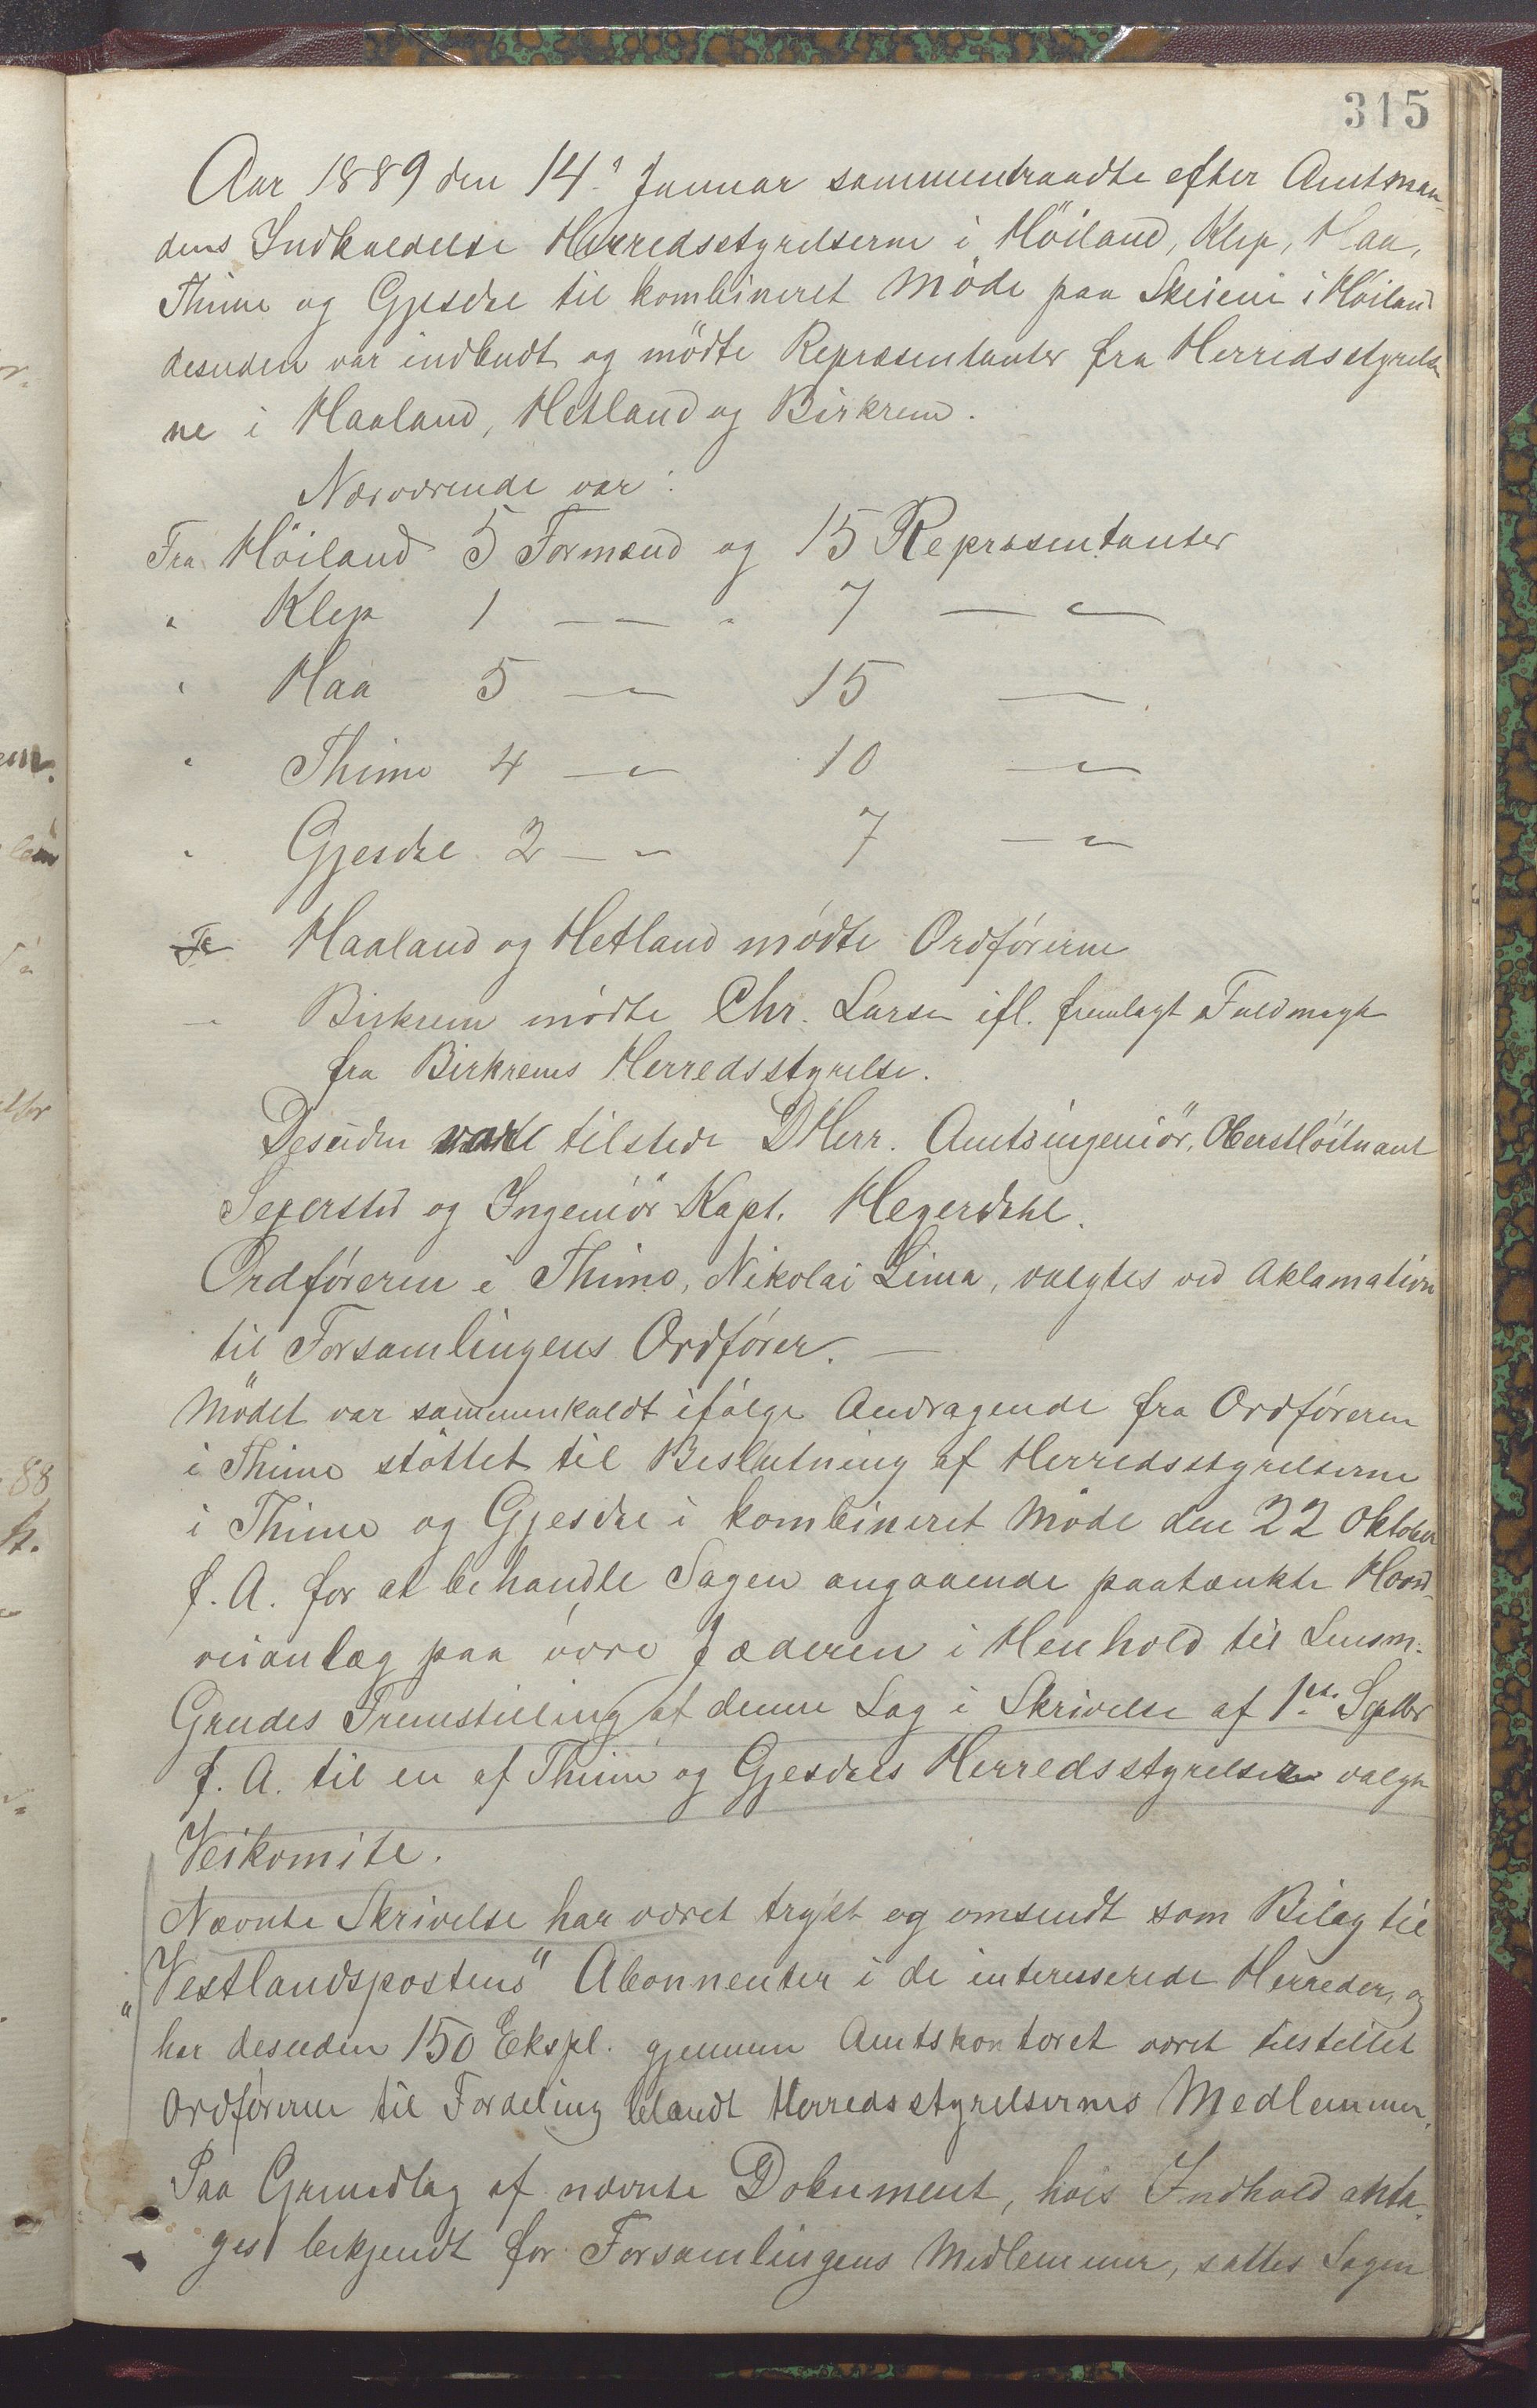 315
Aar 1889 den 14de Januar sammentraadte efter Amtman-
dens Indkaldelse Herredsstyrelserne i Höiland, Klep, Haa,
Thime og Gjesdal til kombineret Möde paa Skeiene i Höiland
desuden var indbudt og mödte Repræsentanter fra Herredsstyrelser
ne i Haaland, Hetland og Birkrem.
Nærværende var:
Fra Höiland 5 Formænd og 15 Repræsentanter
" Klep 1 — " — " 7 — " —
" Haa 5 — " — 15 — " —
" Thime 4 — " — 10 — " —
" Gjesdal 2 — " — 7 — " —
Fr Haaland og Hetland mödte Ordförerne
— Birkrem mödte Chr. Larsen ifl. fremlagt Fuldmagt
fra Birkrems Herredsstyrelse.
Desuden vare tilstede DHerr. Amtsingeniör, Oberstlöitnant
Segersted og Ingeniör Kapt. Hegerdahl.
Ordföreren i Thime, Nikolai Lima, valgtes ved Aklamation
til Forsamlingens Ordförer. —
Mödet var sammenkaldt ifölge Andragende fra Ordföreren
i Thime stöttet til Beslutning af Herredsstyrelserne
i Thime og Gjesdal i kombineret Möde den 22 Oktober
f. A. for at behandle Sagen angaaende paatænkte Hoved-
veianlæg paa övre Jæderen i Henhold til Lensm.
Grudes Fremstilling af denne Sag i Skrivelse af 1ste Septbr
f. A. til en af Thime og Gjesdals Herredsstyrelser valgt
Veikomite.
Nævnte Skrivelse har været trykt og omsendt som Bilag til
"Vestlandspostens" Abonnenter i de interesserede Herreder, og
har desuden 150 Ekspl. gjennem Amtskontoret været tilstillet
Ordförerne til Fordeling blandt Herredsstyrelsernes Medlemmer.
Paa Grundlag af nævnte Dokument, hvis Indhold anta-
ges bekjendt for Forsamlingens Medlemmer, sattes Sagen